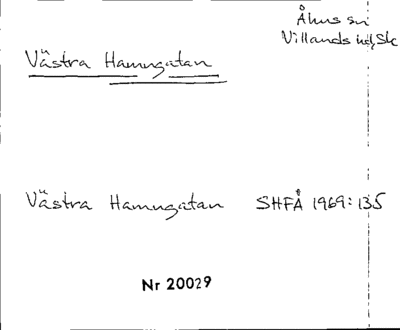 Åhus sn
Villands hd, Sk
Västra Hamngatan
Västra Hamngatan SHFÅ 1969:135
Nr 20029